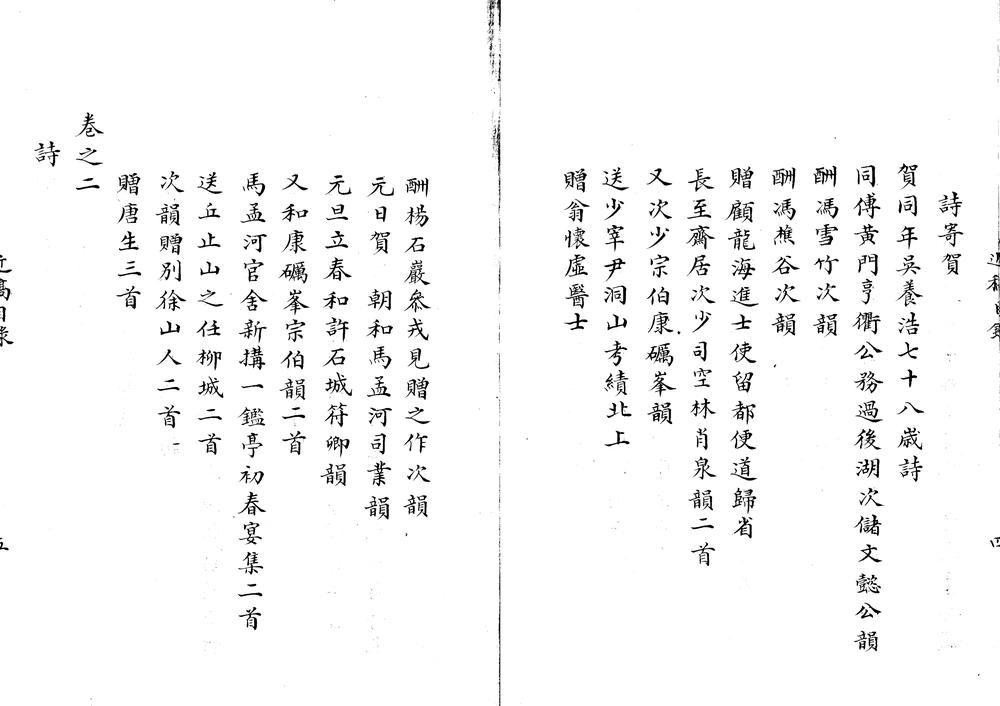 詩寄賀
賀同年吳養浩七十八歲詩
同傅黃門亨衢公務過後湖次儲文懿公韻
酬馮雪竹次韻
酬馮樵谷次韻
贈顧龍海進士使留都便道歸省
長至齋居次少司空林肖泉韻二首
又次少宗伯康礪峯韻
送少宰尹洞山考績北上
贈翁懷虛醫士
四
酬楊石巖叅戎見贈之作次韻
元日賀　朝和馬孟河司業韻
元旦立春和許石城符卿韻
又和康礪峯宗伯韻二首
馬孟河官舍新搆一鑑亭初春宴集二首
送丘止山之任柳城二首
次韻贈別徐山人二首
贈唐生三首
卷之二
詩
五